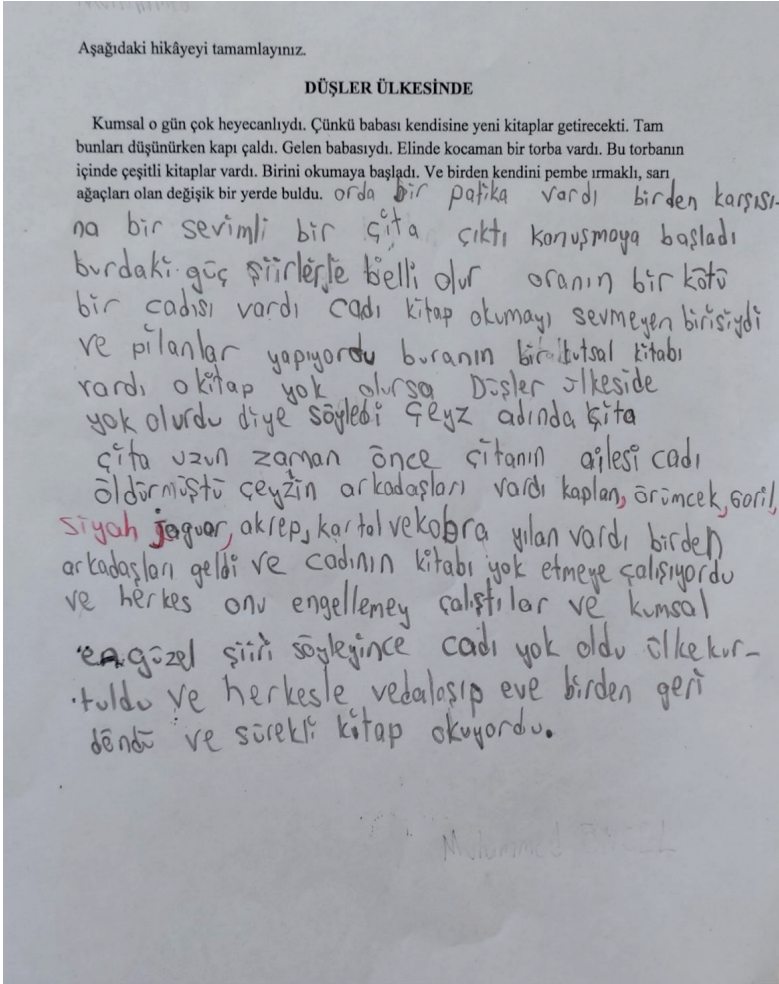 Aşağıdaki hikâyeyi tamamlayınız.
DÜŞLER ÜLKESİNDE
Kumsal o gün çok heyecanlıydı. Çünkü babası kendisine yeni kitaplar getirecekti. Tam
bunları düşünürken kapı çaldı. Gelen babasıydı. Elinde kocaman bir torba vardı. Bu torbanın
içinde çeşitli kitaplar vardı. Birini okumaya başladı. Ve birden kendini pembe ırmaklı, sarı
ağaçları olan değişik bir yerde buldu. orda bir patika vardı birden karşısı-
na bir sevimli bir çita çıktı konuşmaya başladı
burdaki güç şiirlerle belli olur oranın bir kötü
bir cadısı vardı cadı kitap okumayı sevmeyen birisiydi
ve pilanlar yapıyordu buranın bir kutsal kitabı
vardı o kitap yok olursa Düşler ülkeside
yok olurdu diye söyledi Çeyz adında çita
çita uzun zaman önce çitanın ailesi cadı
öldürmüştü çeyzin arkadaşları vardı kaplan, örümcek, Goril,
siyah jaguar, akrep, kartal ve kobra yılan vardı birden
arkadaşları geldi ve cadının kitabı yok etmeye çalışıyordu
ve herkes onu engellemey çalıştılar ve kumsal
en güzel şiiri söyleyince cadı yok oldu ülke kur-
tuldu ve herkesle vedalaşıp eve birden geri
döndü ve sürekli kitap okuyordu.
Muhammed